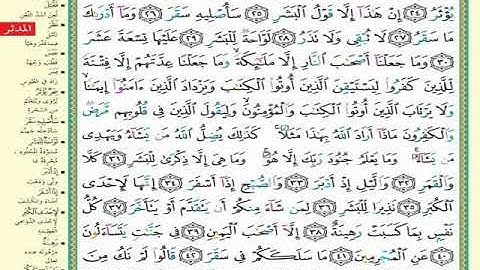 المدثر
يُؤْثَرُ ﴿٢٤﴾ إِنْ هَٰذَا إِلَّا قَوْلُ ٱلْبَشَرِ ﴿٢٥﴾ سَأُصْلِيهِ سَقَرَ ﴿٢٦﴾ وَمَآ أَدْرَىٰكَ
مَا سَقَرُ ﴿٢٧﴾ لَا تُبْقِى وَلَا تَذَرُ ﴿٢٨﴾ لَوَّاحَةٌ لِّلْبَشَرِ ﴿٢٩﴾ عَلَيْهَا تِسْعَةَ عَشَرَ
﴿٣٠﴾ وَمَا جَعَلْنَآ أَصْحَٰبَ ٱلنَّارِ إِلَّا مَلَٰٓئِكَةً ۙ وَمَا جَعَلْنَا عِدَّتَهُمْ إِلَّا فِتْنَةً
لِّلَّذِينَ كَفَرُوا۟ لِيَسْتَيْقِنَ ٱلَّذِينَ أُوتُوا۟ ٱلْكِتَٰبَ وَيَزْدَادَ ٱلَّذِينَ ءَامَنُوٓا۟ إِيمَٰنًا ۙ
وَلَا يَرْتَابَ ٱلَّذِينَ أُوتُوا۟ ٱلْكِتَٰبَ وَٱلْمُؤْمِنُونَ ۙ وَلِيَقُولَ ٱلَّذِينَ فِى قُلُوبِهِم مَّرَضٌ
وَٱلْكَٰفِرُونَ مَاذَآ أَرَادَ ٱللَّهُ بِهَٰذَا مَثَلًا ۚ كَذَٰلِكَ يُضِلُّ ٱللَّهُ مَن يَشَآءُ وَيَهْدِى
مَن يَشَآءُ ۚ وَمَا يَعْلَمُ جُنُودَ رَبِّكَ إِلَّا هُوَ ۚ وَمَا هِىَ إِلَّا ذِكْرَىٰ لِلْبَشَرِ ﴿٣١﴾ كَلَّا
وَٱلْقَمَرِ ﴿٣٢﴾ وَٱلَّيْلِ إِذْ أَدْبَرَ ﴿٣٣﴾ وَٱلصُّبْحِ إِذَآ أَسْفَرَ ﴿٣٤﴾ إِنَّهَا لَإِحْدَى
ٱلْكُبَرِ ﴿٣٥﴾ نَذِيرًا لِّلْبَشَرِ ﴿٣٦﴾ لِمَن شَآءَ مِنكُمْ أَن يَتَقَدَّمَ أَوْ يَتَأَخَّرَ ﴿٣٧﴾ كُلُّ
نَفْسٍۭ بِمَا كَسَبَتْ رَهِينَةٌ ﴿٣٨﴾ إِلَّآ أَصْحَٰبَ ٱلْيَمِينِ ﴿٣٩﴾ فِى جَنَّٰتٍ يَتَسَآءَلُونَ
﴿٤٠﴾ عَنِ ٱلْمُجْرِمِينَ ﴿٤١﴾ مَا سَلَكَكُمْ فِى سَقَرَ ﴿٤٢﴾ قَالُوا۟ لَمْ نَكُ مِنَ